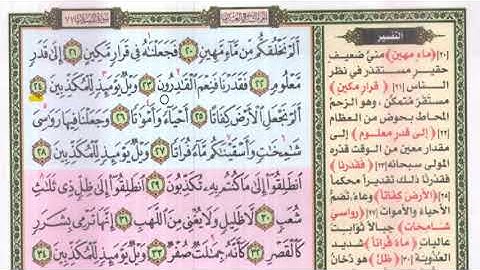 سورة المرسلات ٧٧
التفسير
أَلَمْ نَخْلُقكُّم مِّن مَّآءٍ مَّهِينٍ ٢٠ فَجَعَلْنَٰهُ فِى قَرَارٍ مَّكِينٍ ٢١ إِلَىٰ قَدَرٍ
مَّعْلُومٍ ٢٢ فَقَدَرْنَا فَنِعْمَ ٱلْقَٰدِرُونَ ٢٣ وَيْلٌ يَوْمَئِذٍ لِّلْمُكَذِّبِينَ ٢٤
أَلَمْ نَجْعَلِ ٱلْأَرْضَ كِفَاتًا ٢٥ أَحْيَآءً وَأَمْوَٰتًا ٢٦ وَجَعَلْنَا فِيهَا رَوَٰسِىَ
شَٰمِخَٰتٍ وَأَسْقَيْنَٰكُم مَّآءً فُرَاتًا ٢٧ وَيْلٌ يَوْمَئِذٍ لِّلْمُكَذِّبِينَ ٢٨
ٱنطَلِقُوٓا۟ إِلَىٰ مَا كُنتُم بِهِۦ تُكَذِّبُونَ ٢٩ ٱنطَلِقُوٓا۟ إِلَىٰ ظِلٍّ ذِى ثَلَٰثِ
شُعَبٍ ٣٠ لَّا ظَلِيلٍ وَلَا يُغْنِى مِنَ ٱللَّهَبِ ٣١ إِنَّهَا تَرْمِى بِشَرَرٍ
كَٱلْقَصْرِ ٣٢ كَأَنَّهُۥ جِمَٰلَتٌ صُفْرٌ ٣٣ وَيْلٌ يَوْمَئِذٍ لِّلْمُكَذِّبِينَ ٣٤
[٢٠] ﴿ماء مهين﴾ منيّ ضعيف
حقير مستقذر في نظر
الناس [٢١] ﴿قرار مكين﴾
مستقرّ متمكّن، وهو الرّحم
المحاط بحوض من العظام
[٢٢] ﴿إلى قدر معلوم﴾ إلى
مقدار معين من الوقت قدره
المولى سبحانه [٢٣] ﴿فقدرنا﴾
فقدّرنا ذلك تقديراً محكماً
[٢٥] ﴿الأرض كفاتاً﴾ وعاءً، تضمّ
الأحياء والأموات [٢٧] ﴿رواسي
شامخات﴾ جبالاً ثوابت
عاليات ﴿ماء فراتاً﴾ شديد
العذوبة [٣٠] ﴿ظل﴾ هو دُخان